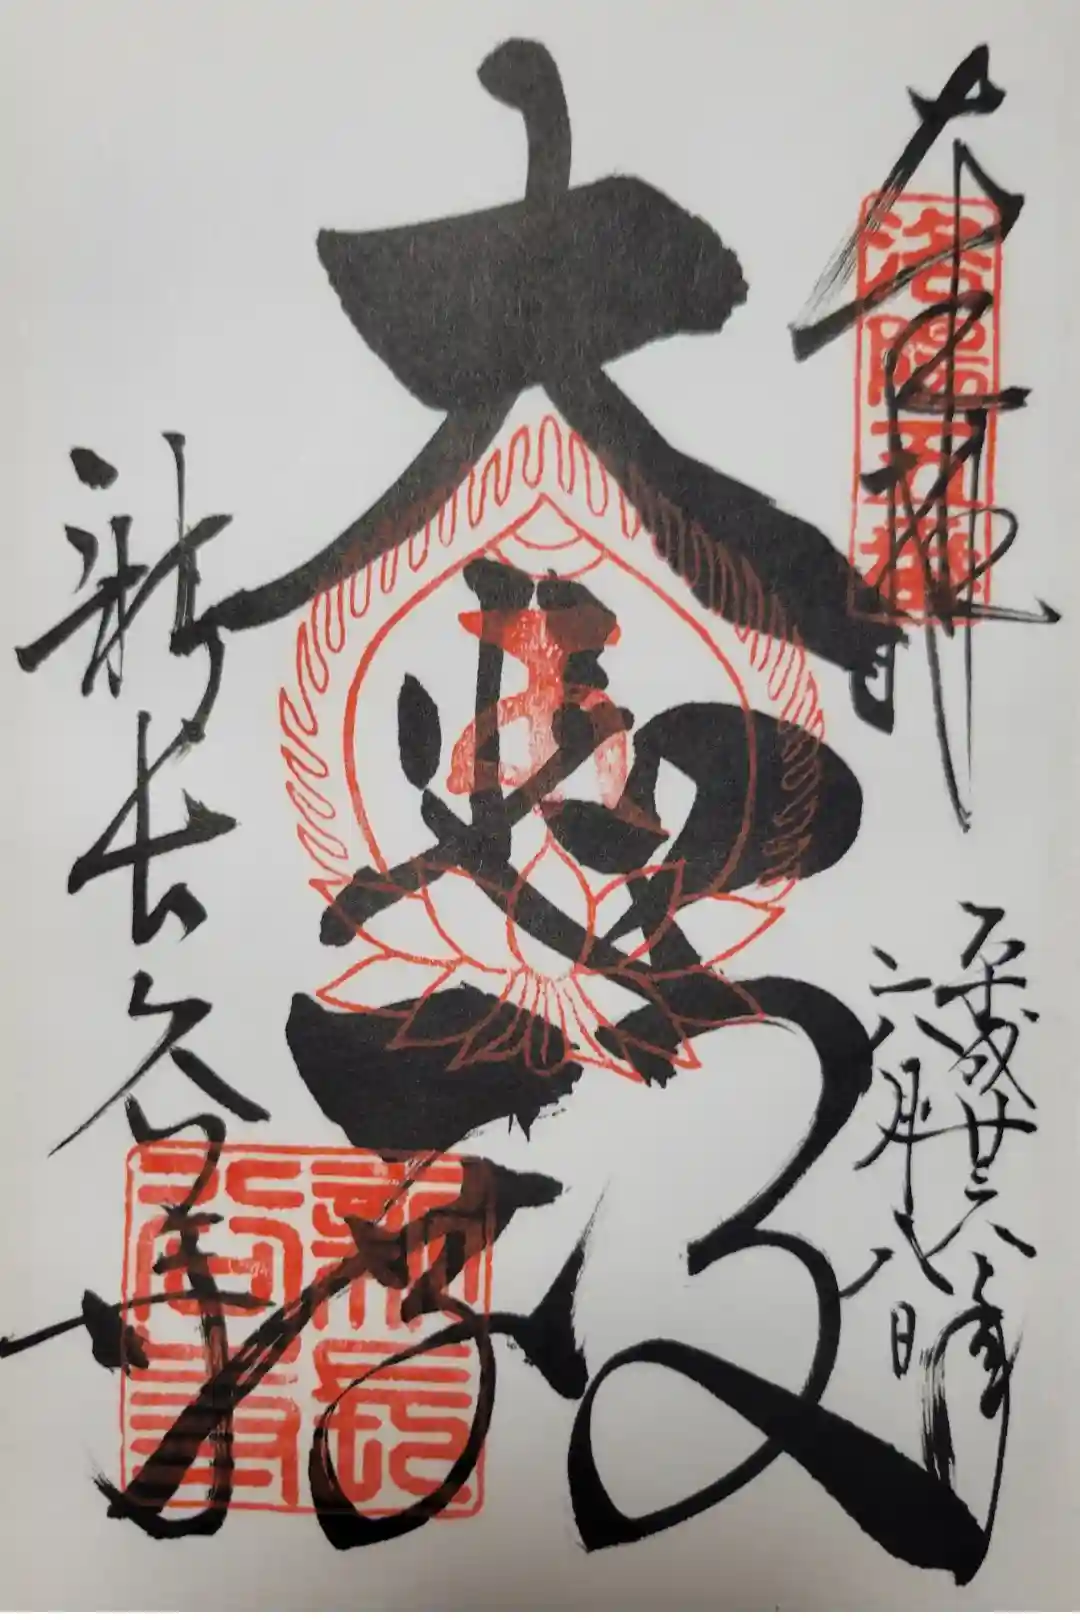 奉拝
洛陽五番
平成廿六年
六月八日
大悲殿
新長谷寺
新長谷寺